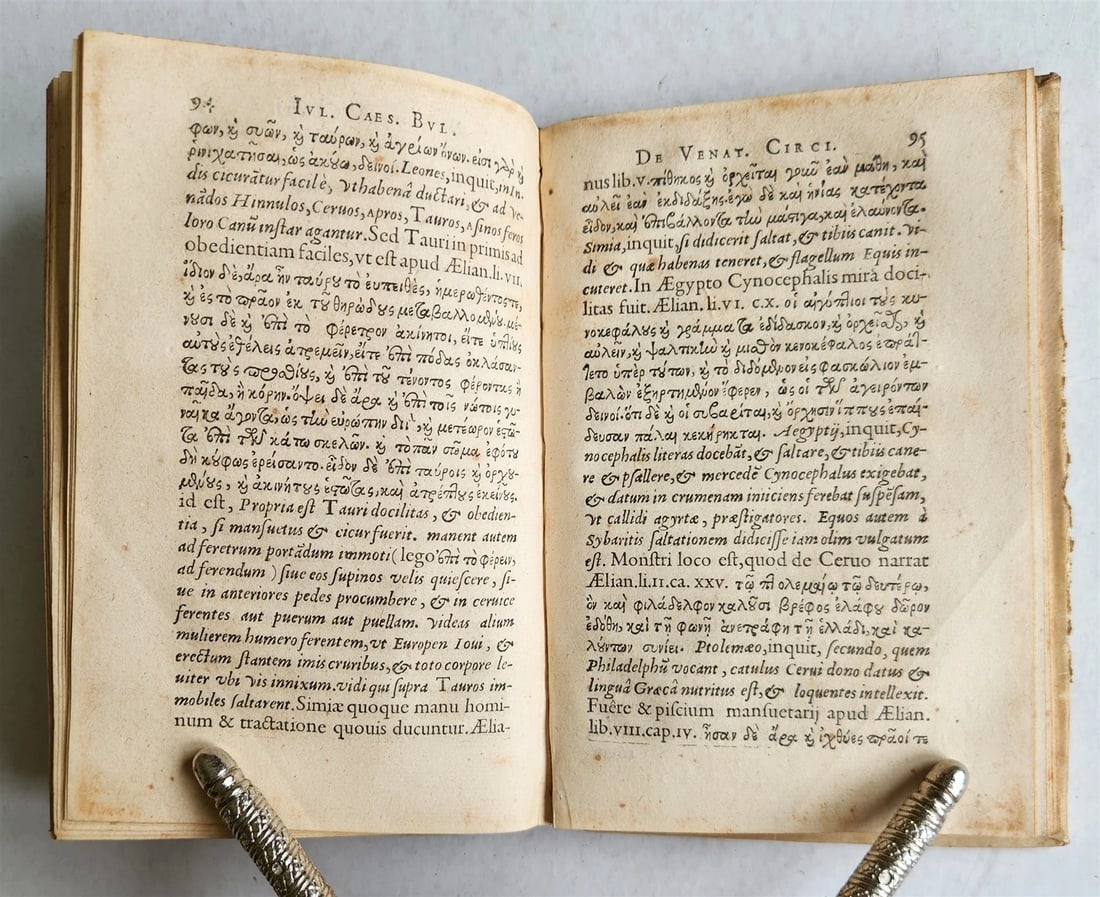 94 IVL. CAES. BVL.
φων, ϗ συῶν, ϗ ταύρων, ϗ ἀγρίων ὄνων. εἰσὶ γὰρ ϗ
ῥινιχατῆσαι, ὡς ἀκούω, δεινοί. Leones, inquit, in In-
dis cicurãtur facilè, vt habenâ ductari, & ad ve-
nãdos Hinnulos, Ceruos, Apros, Tauros, Asinos feros
loro Canũ instar agantur. Sed Tauri in primis ad
obedientiam faciles, vt est apud Ælian. li. VII.
ἴδιον δὲ, ἄρα ἦν ταύρου τὸ εὐπειθὲς, ἡμερωθέντος τε,
ϗ ἐς τὸ πρᾶον ἐκ τοῦ θηριώδους μεταβαλλομένου. μέ-
νουσι δὲ ϗ ἐπὶ τὸ φέρετρον ἀκίνητοι, εἴτε ὑπτίους
αὐτοὺς ἐθέλεις ἀτρεμεῖν, εἴτε ἐπὶ πόδας ὀκλάσαν-
τας τοὺς προσθίους, ϗ ἐπὶ τοῦ τένοντος φέροντας ἢ
παῖδα, ἢ κόρην. ὄψει δὲ ἄρα ϗ ἐπὶ τοῖς νώτοις γυ-
ναῖκα ἄγοντα, ὡς τὴν εὐρώπην διὶ, ϗ μετέωρον ἑστῶ-
τα ἐπὶ τῶν κάτω σκελῶν. ϗ τὸ πᾶν σῶμα ἐφότου
δὴ κύφως ἐρείσαντο. εἶδον δὲ ἐπὶ ταύροις ϗ ὀρχου-
μένους, ϗ ἀκινήτους ἑστῶτας, καὶ ἀτρέπτους ἐκείνους.
id est, Propria est Tauri docilitas, & obedien-
tia, si mansuetus & cicur fuerit. manent autem
ad feretrum portãdum immoti (lego ἐπὶ τὸ φέρειν,
ad ferendum) siue eos supinos velis quiescere, si-
ue in anteriores pedes procumbere, & in ceruice
ferentes aut puerum aut puellam. Videas alium
mulierem humero ferentem, vt Europen Ioui, &
erectum stantem imis cruribus, & toto corpore le-
uiter vbi vis innixum. vidi qui supra Tauros im-
mobiles saltarent. Simiæ quoque manu homi-
num & tractatione quouis ducuntur. Ælia-
DE VENAT. CIRCI. 95
nus lib. v. πίθηκος ϗ ὀρχεῖται γοῦν ἐὰν μάθῃ, καὶ
αὐλεῖ ἐὰν ἐκδιδάξῃς. ἐγὼ δὲ καὶ ἡνίας κατέχοντα
εἶδον, καὶ ἐπιβάλλοντα τὴν μάστιγα, καὶ ἐλαύνοντα.
Simia, inquit, si didicerit saltat, & tibiis canit. Vi-
di & quæ habenas teneret, & flagellum Equis in-
cuteret. In Ægypto Cynocephalis mira doci-
litas fuit. Ælian. li. VI. c. X. οἱ αἰγύπτιοι τοὺς κυ-
νοκεφάλους ϗ γράμματα ἐδίδασκον, ϗ ὀρχεῖσθαι, ϗ
αὐλεῖν, ϗ ψαλτικὴν ϗ μισθὸν κενοκέφαλος ἐπράτ-
τετο ὑπὲρ τούτων, ϗ τὸ διδόμενον εἰς φασκώλιον ἐμ-
βαλὼν ἐξηρτημένον ἔφερεν, ὡς οἱ τῶν ἀγειρόντων
δεινοί. ὅτι δὲ ϗ οἱ συβαρῖται, ϗ ὄρχησιν ἵππους ἐπαί-
δευσαν πάλαι κεκήρηκται. Aegyptij, inquit, Cy-
nocephalis literas docebãt, & saltare, & tibiis cane-
re & psallere, & mercedẽ Cynocephalus exigebat,
& datum in crumenam iniiciens ferebat suspẽsam,
vt callidi agyrtæ, præstigatores. Equos autem à
Sybaritis saltationem didicisse iam olim vulgatum
est. Monstri loco est, quod de Ceruo narrat
Ælian. li. II. ca. XXV. τῷ πτολεμαίῳ τῷ δευτέρῳ,
ὃν καὶ φιλάδελφον καλοῦσι βρέφος ἐλάφου δῶρον
ἐδόθη, καὶ τῇ φωνῇ ἀνετράφη τῇ ἑλλάδι, καὶ κα-
λούντων συνίει. Ptolemæo, inquit, secundo, quem
Philadelphũ vocant, catulus Cerui dono datus &
linguâ Græcâ nutritus est, & loquentes intellexit.
Fuêre & piscium mansuetarij apud Ælian.
lib. VIII. cap. IV. ἦσαν δὲ ἄρα ϗ ἰχθύες πρᾶοί τε